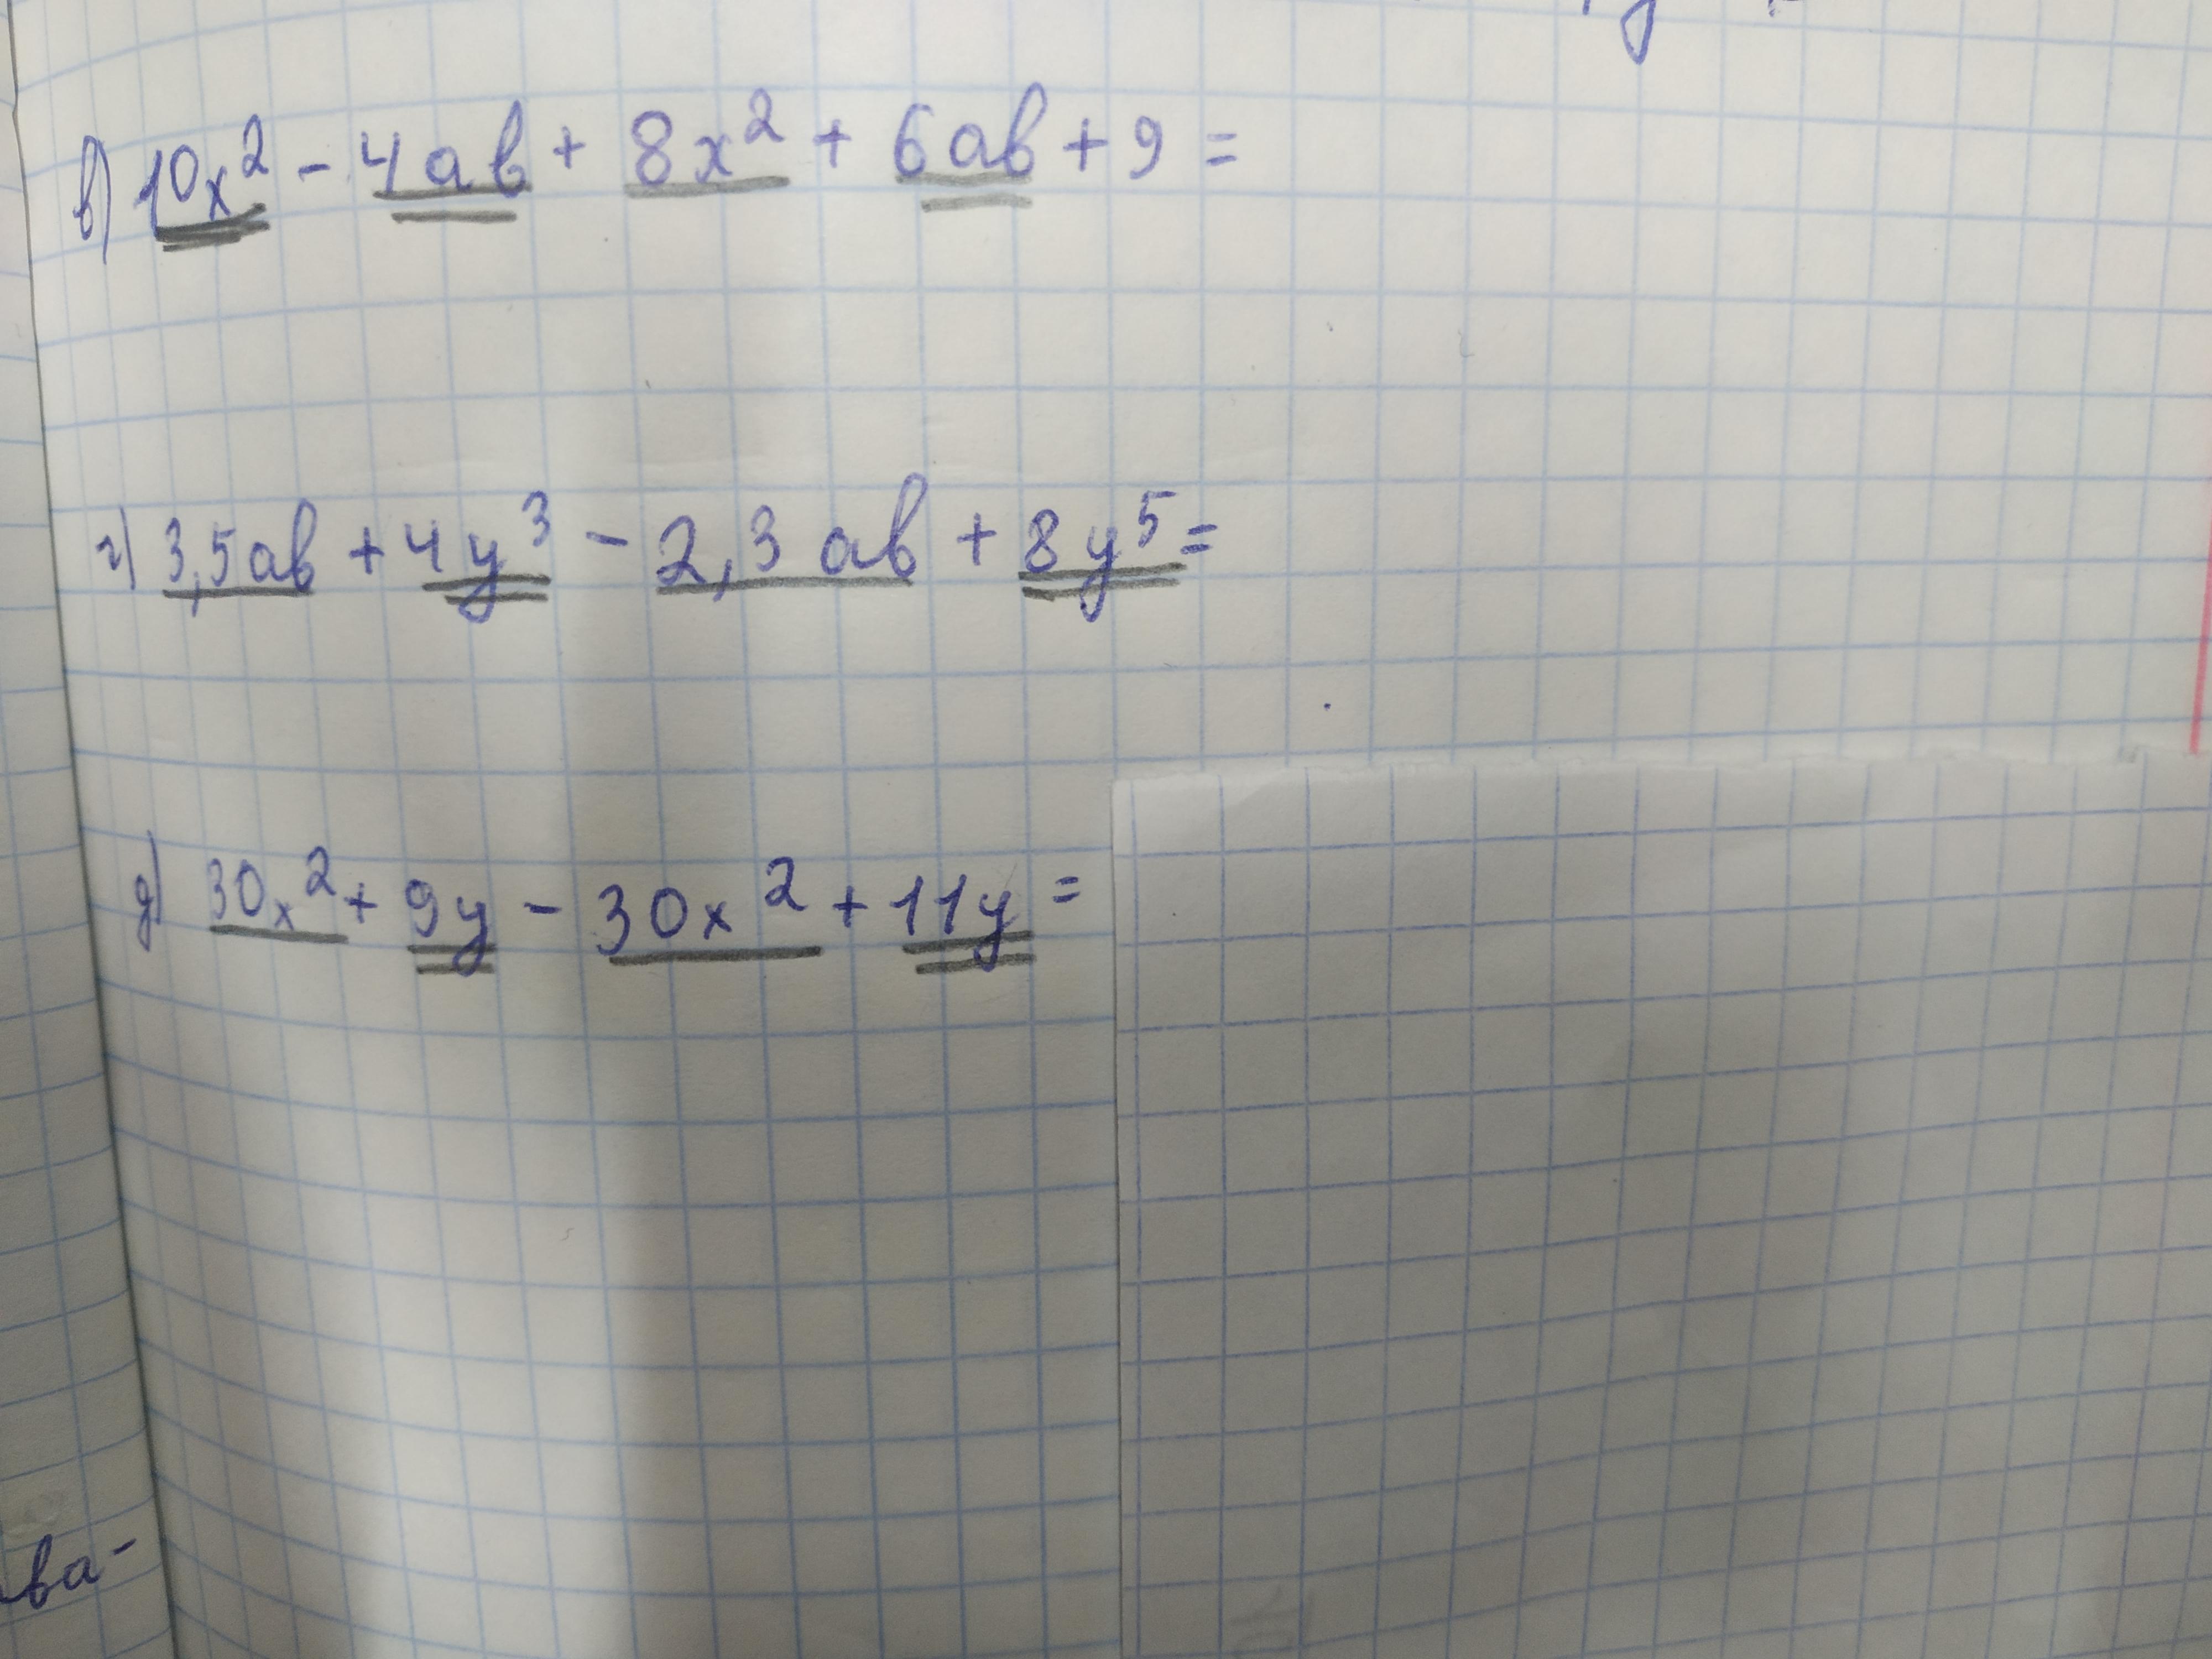 в) 10x² - 4ab + 8x² + 6ab + 9 =
г) 3,5ab + 4y³ - 2,3ab + 8y⁵ =
д) 30x² + 9y - 30x² + 11y =
ва-